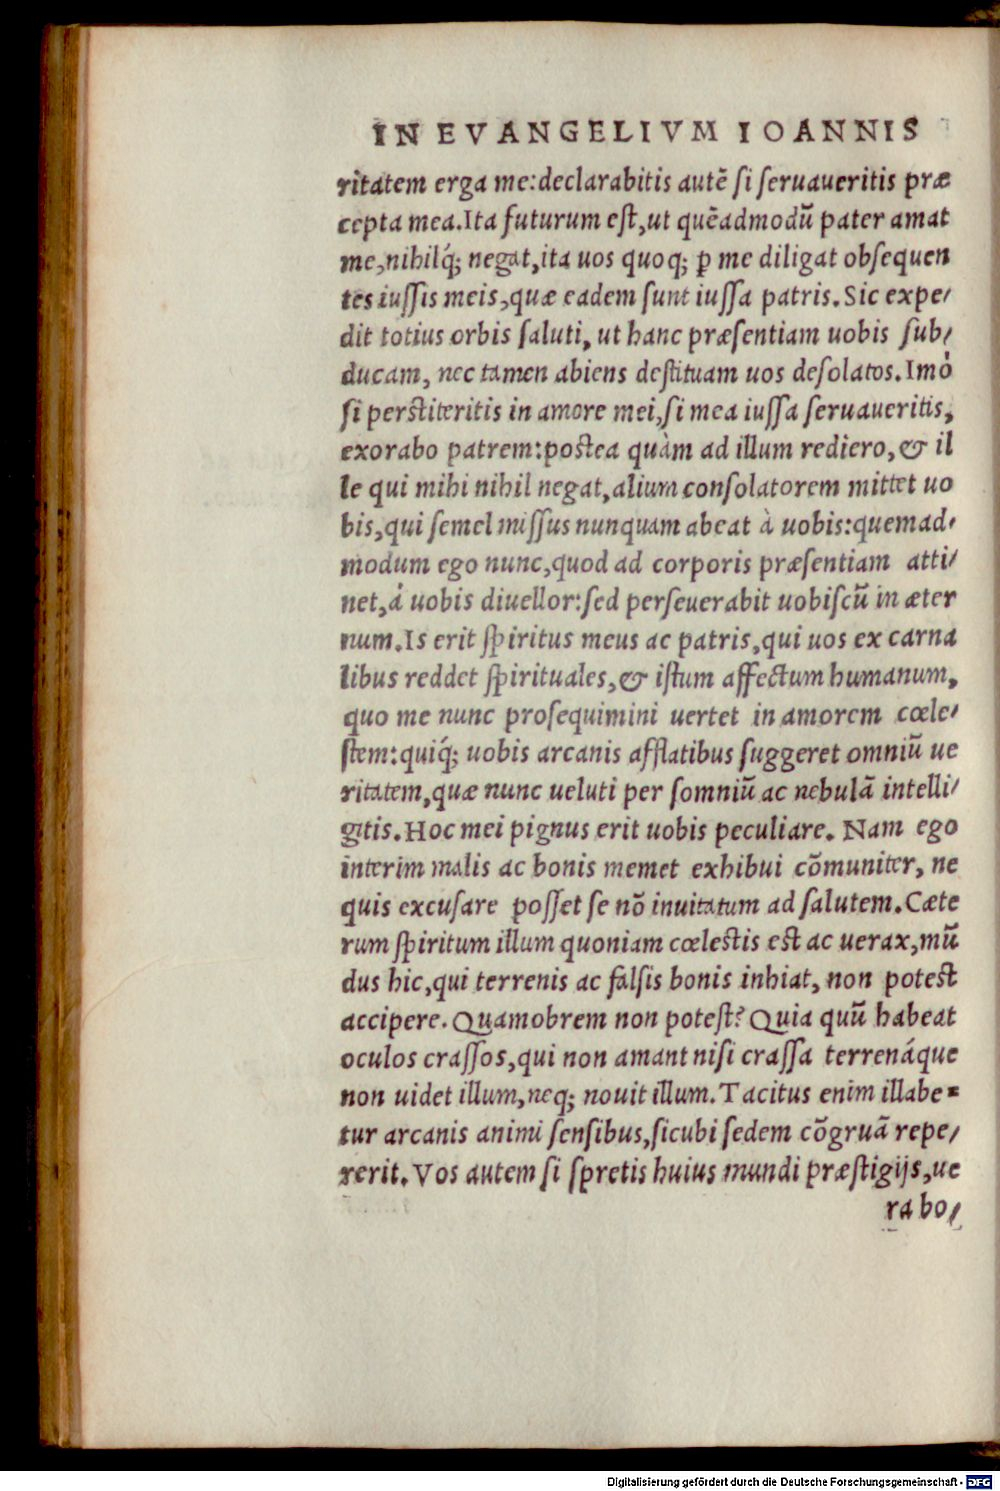 IN EVANGELIVM IOANNIS
ritatem erga me:declarabitis autē si seruaueritis præ
cepta mea.Ita futurum est,ut quēadmodū pater amat
me,nihilq́; negat,ita uos quoq; ꝑ me diligat obsequen
tes iussis meis,quæ eadem sunt iussa patris.Sic expe/
dit totius orbis saluti, ut hanc præsentiam uobis sub/
ducam, nec tamen abiens destituam uos desolatos.Imò
si perstiteritis in amore mei,si mea iussa seruaueritis,
exorabo patrem:postea quàm ad illum rediero,& il
le qui mihi nihil negat,alium consolatorem mittet uo
bis,qui semel missus nunquam abeat à uobis:quemad/
modum ego nunc,quod ad corporis præsentiam atti/
net,à uobis diuellor:sed perseuerabit uobiscū in æter
num.Is erit spiritus meus ac patris,qui uos ex carna
libus reddet spirituales,& istum affectum humanum,
quo me nunc prosequimini uertet in amorem cœle/
stem:quiq́; uobis arcanis afflatibus suggeret omniū ue
ritatem,quæ nunc ueluti per somniū ac nebulā intelli/
gitis.Hoc mei pignus erit uobis peculiare. Nam ego
interim malis ac bonis memet exhibui cōmuniter, ne
quis excusare posset se nō inuitatum ad salutem.Cæte
rum spiritum illum quoniam cœlestis est ac uerax,mū
dus hic,qui terrenis ac falsis bonis inhiat, non potest
accipere.Quamobrem non potest?Quia quū habeat
oculos crassos,qui non amant nisi crassa terrenáque
non uidet illum,neq; nouit illum.Tacitus enim illabe=
tur arcanis animi sensibus,sicubi sedem cōgruā repe/
rerit.Vos autem si spretis huius mundi præstigijs,ue
ra bo/
Digitalisierung gefördert durch die Deutsche Forschungsgemeinschaft - DFG